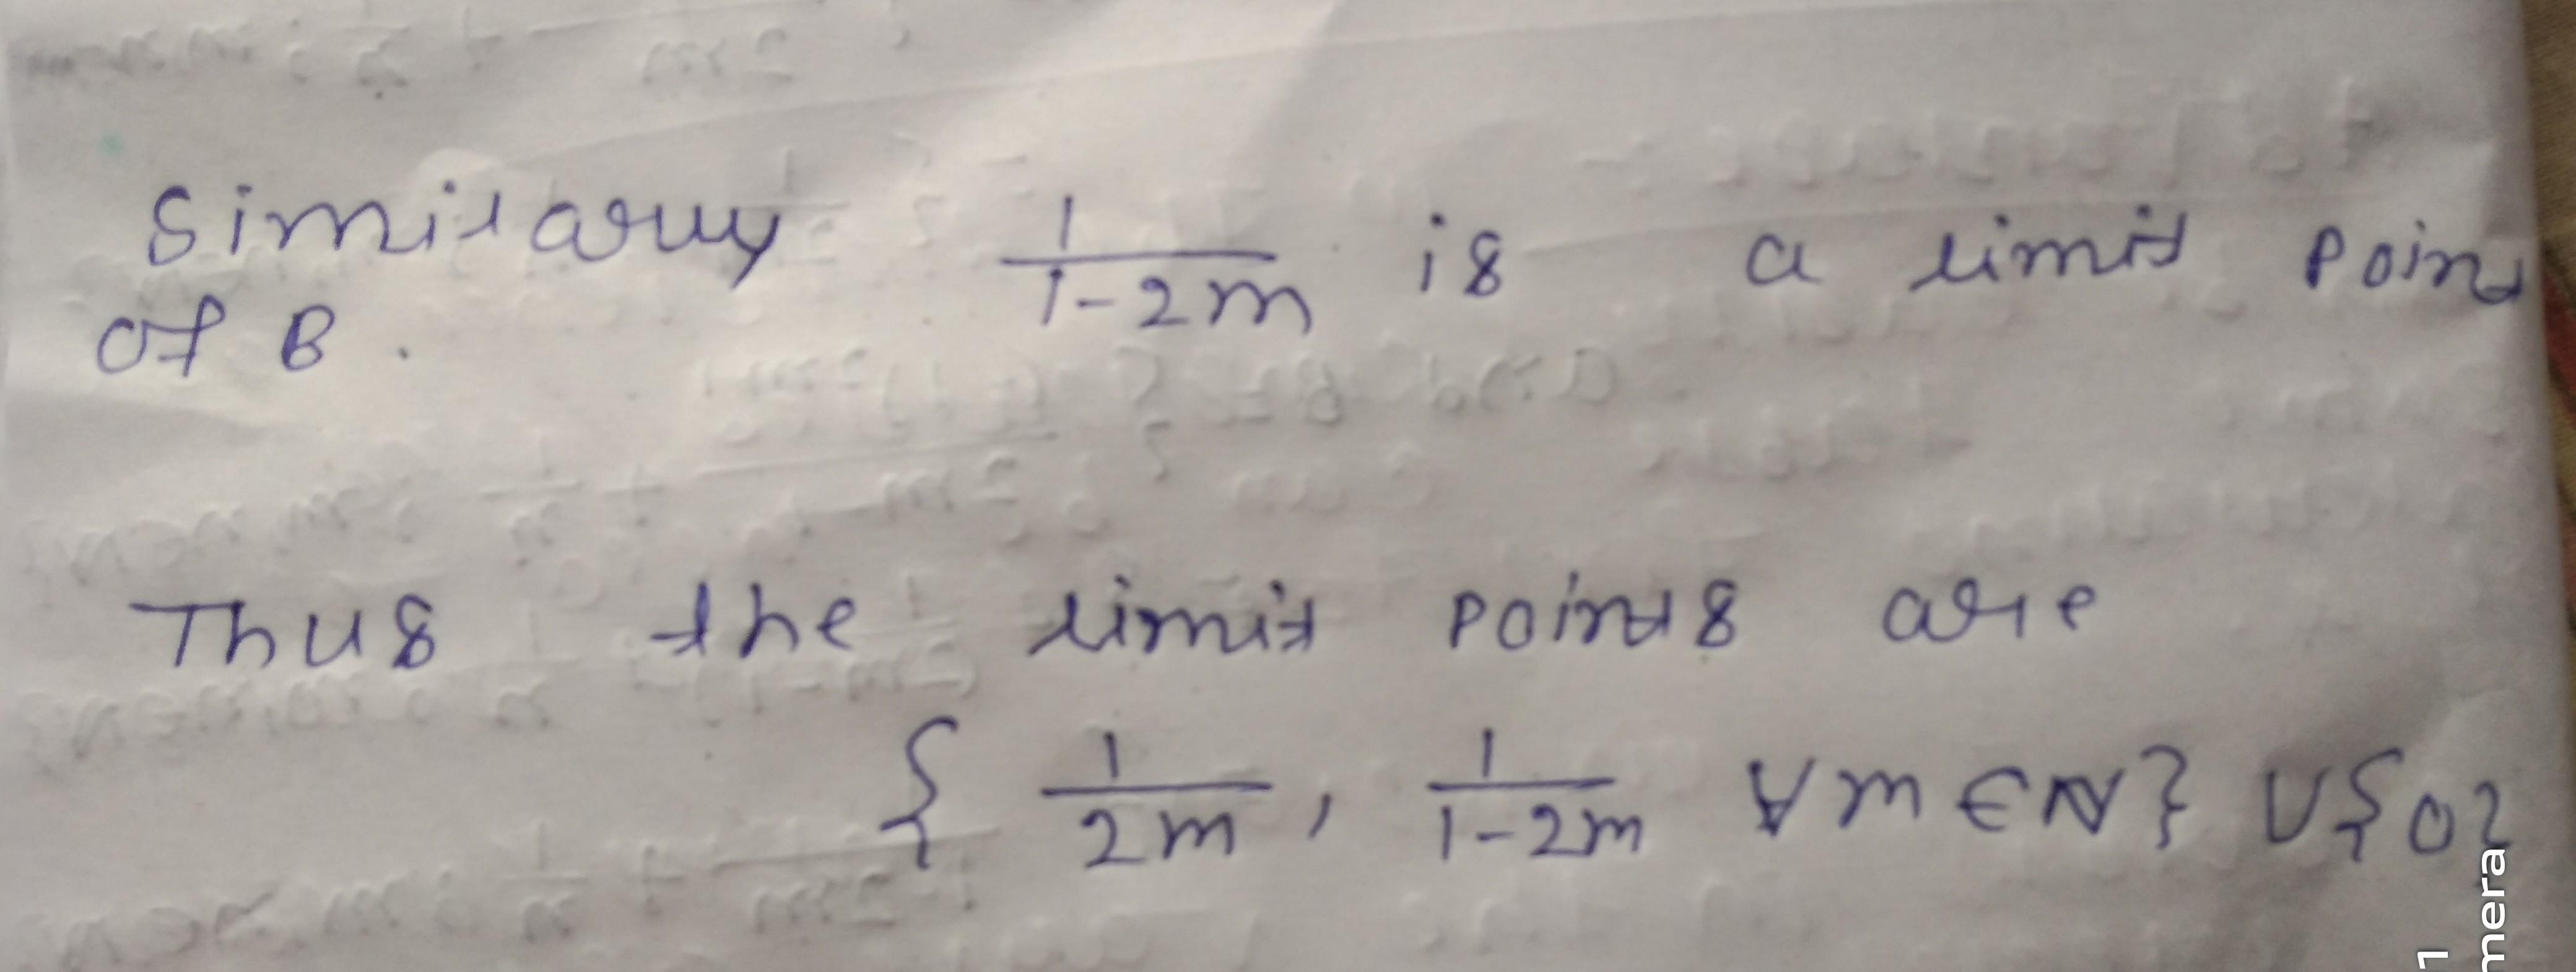 Similarly 1/(1-2m) is a limit point
of B.
Thus the limit points are
{ 1/2m, 1/(1-2m) ∀ m ∈ N } ∪ {0}
1
mera